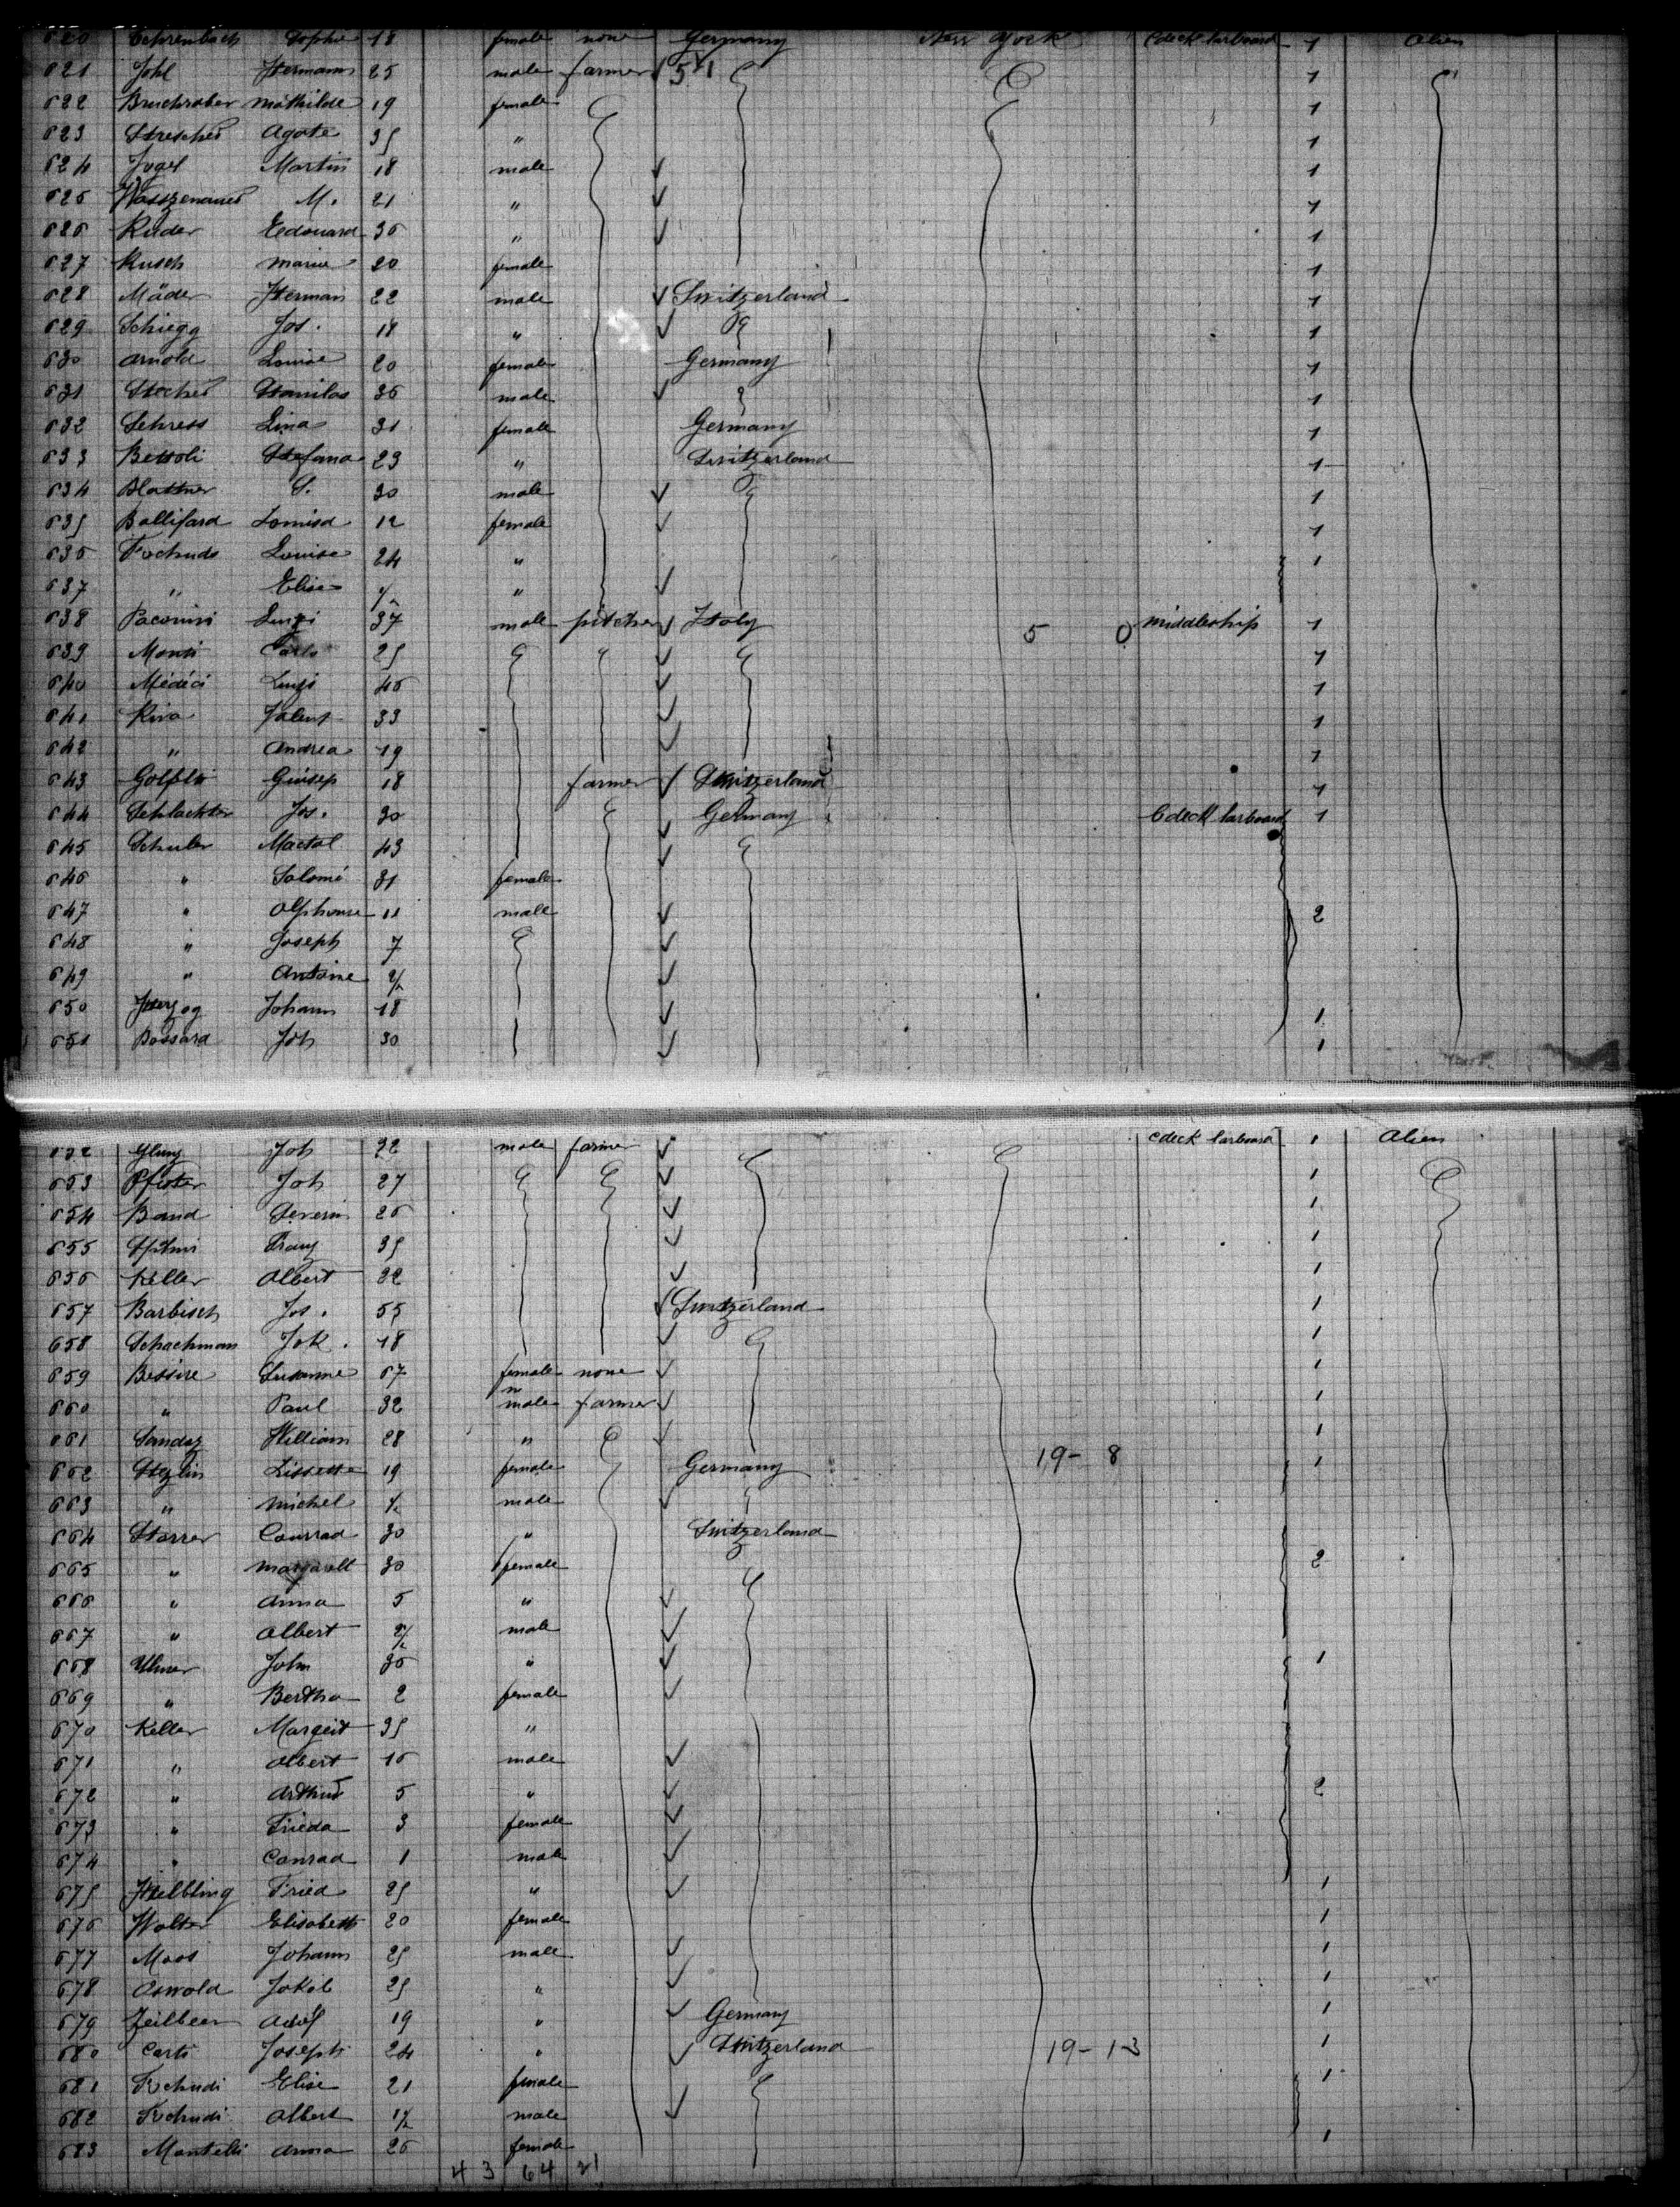 620 Sophie 18 female none Germany New York Cdeck larboard 1 Alien
621 Johl Hermann 25 male farmer 51 1
622 Bruchraber Mathilde 19 female 1
623 Agate 35 " 1
624 Martin 18 male 1
625 M. 21 " 1
626 Ruder Edouard 36 " 1
627 Rusch Marie 20 female 1
628 Mäder Herman 22 male Switzerland 1
629 Schiegg Jos. 18 " 1
630 Arnold Louise 20 female Germany 1
631 Stecher Stanilas 36 male 1
632 Sehress Lina 31 female Germany 1
633 Bettoli Stefana 23 " Switzerland 1
634 Blattner S. 30 male 1
635 Ballifard Louisa 12 female 1
636 Louise 24 " 1
637 " Elise " 
638 Paconini Luigi 37 male pitcher Italy 5 0 middleship 1
639 Monti Carlo 25 1
640 Médéci Luigi 46 1
641 Riva 33 1
642 " Andrea 19 1
643 Giusep 18 farmer Switzerland 1
644 Schlachter Jos. 30 Germany Cdeck larboard 1
645 Schuler 43
646 " Salomé 31 female
647 " Alphonse 11 male 2
648 " Joseph 7
649 " Antoine
650 Herzog Johann 18 1
651 Bossard Joh 30 1
652 Joh 32 male farmer Cdeck larboard 1 Alien
653 Pfister Joh 27 1
654 Band Severin 26 1
655 Franz 35 1
656 Keller Albert 22 1
657 Barbisch Jos. 55 Switzerland 1
658 Schachmann Jok. 18 1
659 Bessire Susanne 67 female none 1
660 " Paul 32 male farmer 1
661 Sandoz William 28 " 1
662 Stezlin Lissette 19 female Germany 19-8 1
663 " Michel ½ male
664 Storrer Conrad 30 " Switzerland
665 " 30 female 2
666 " Anna 5 "
667 " Albert male
668 Ulmer John 36 " 1
669 " Bertha 2 female
670 Keller Margeit 35 "
671 " Albert 16 male
672 " Arthur 5 " 2
673 " Frieda 3 female
674 " Conrad 1 male
675 Helbling Fried 25 " 1
676 Walter Elisabeth 20 female 1
677 Moos Johann 25 male 1
678 Oswald Jakob 25 " 1
679 Zeilbeer Adolf 19 " Germany 1
680 Carti Joseph 24 " Switzerland 19-13 1
681 Tschudi Elise 21 female 1
682 Tschudi Albert 1½ male
683 Mantelli Anna 26 female 1
43 64 21